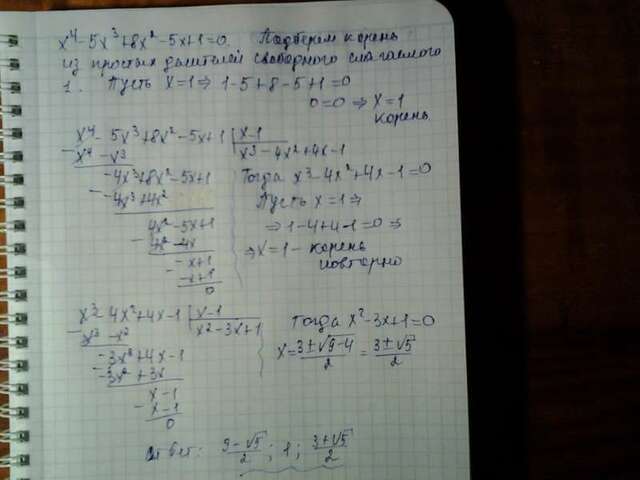 x⁴-5x³+8x²-5x+1=0. Подберем корень
из простых делителей свободного слагаемого
1. Пусть x=1⇒ 1-5+8-5+1=0
0=0 ⇒ x=1
корень.
x⁴-5x³+8x²-5x+1 | x-1
- x⁴-x³
x³-4x²+4x-1
-4x³+8x²-5x+1
- -4x³+4x²
4x²-5x+1
- 4x²-4x
-x+1
- -x+1
0
Тогда x³-4x²+4x-1=0
Пусть x=1⇒
⇒1-4+4-1=0⇒
⇒x=1- корень
повторно
x³-4x²+4x-1 | x-1
- x³-x²
x²-3x+1
-3x²+4x-1
- -3x²+3x
x-1
- x-1
0
Тогда x²-3x+1=0
x=(3±√9-4)/2=(3±√5)/2
Ответ: (3-√5)/2; 1; (3+√5)/2